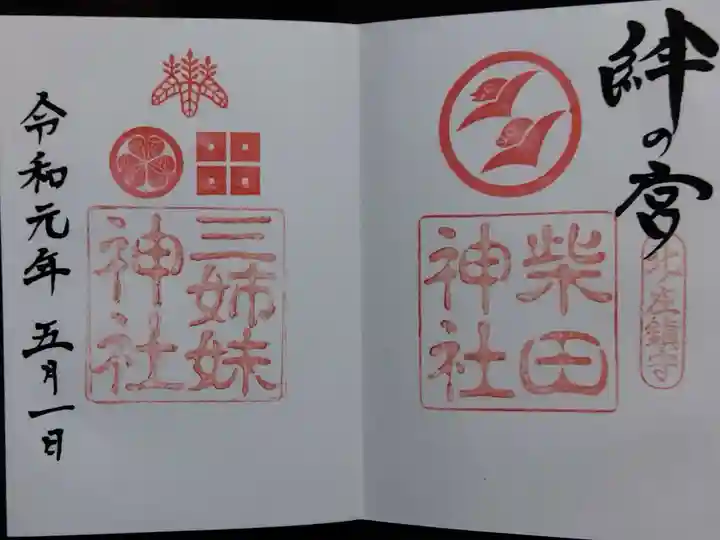 絆の宮
北庄鎮守
柴田
神社
三姉妹
神社
令和元年 五月一日